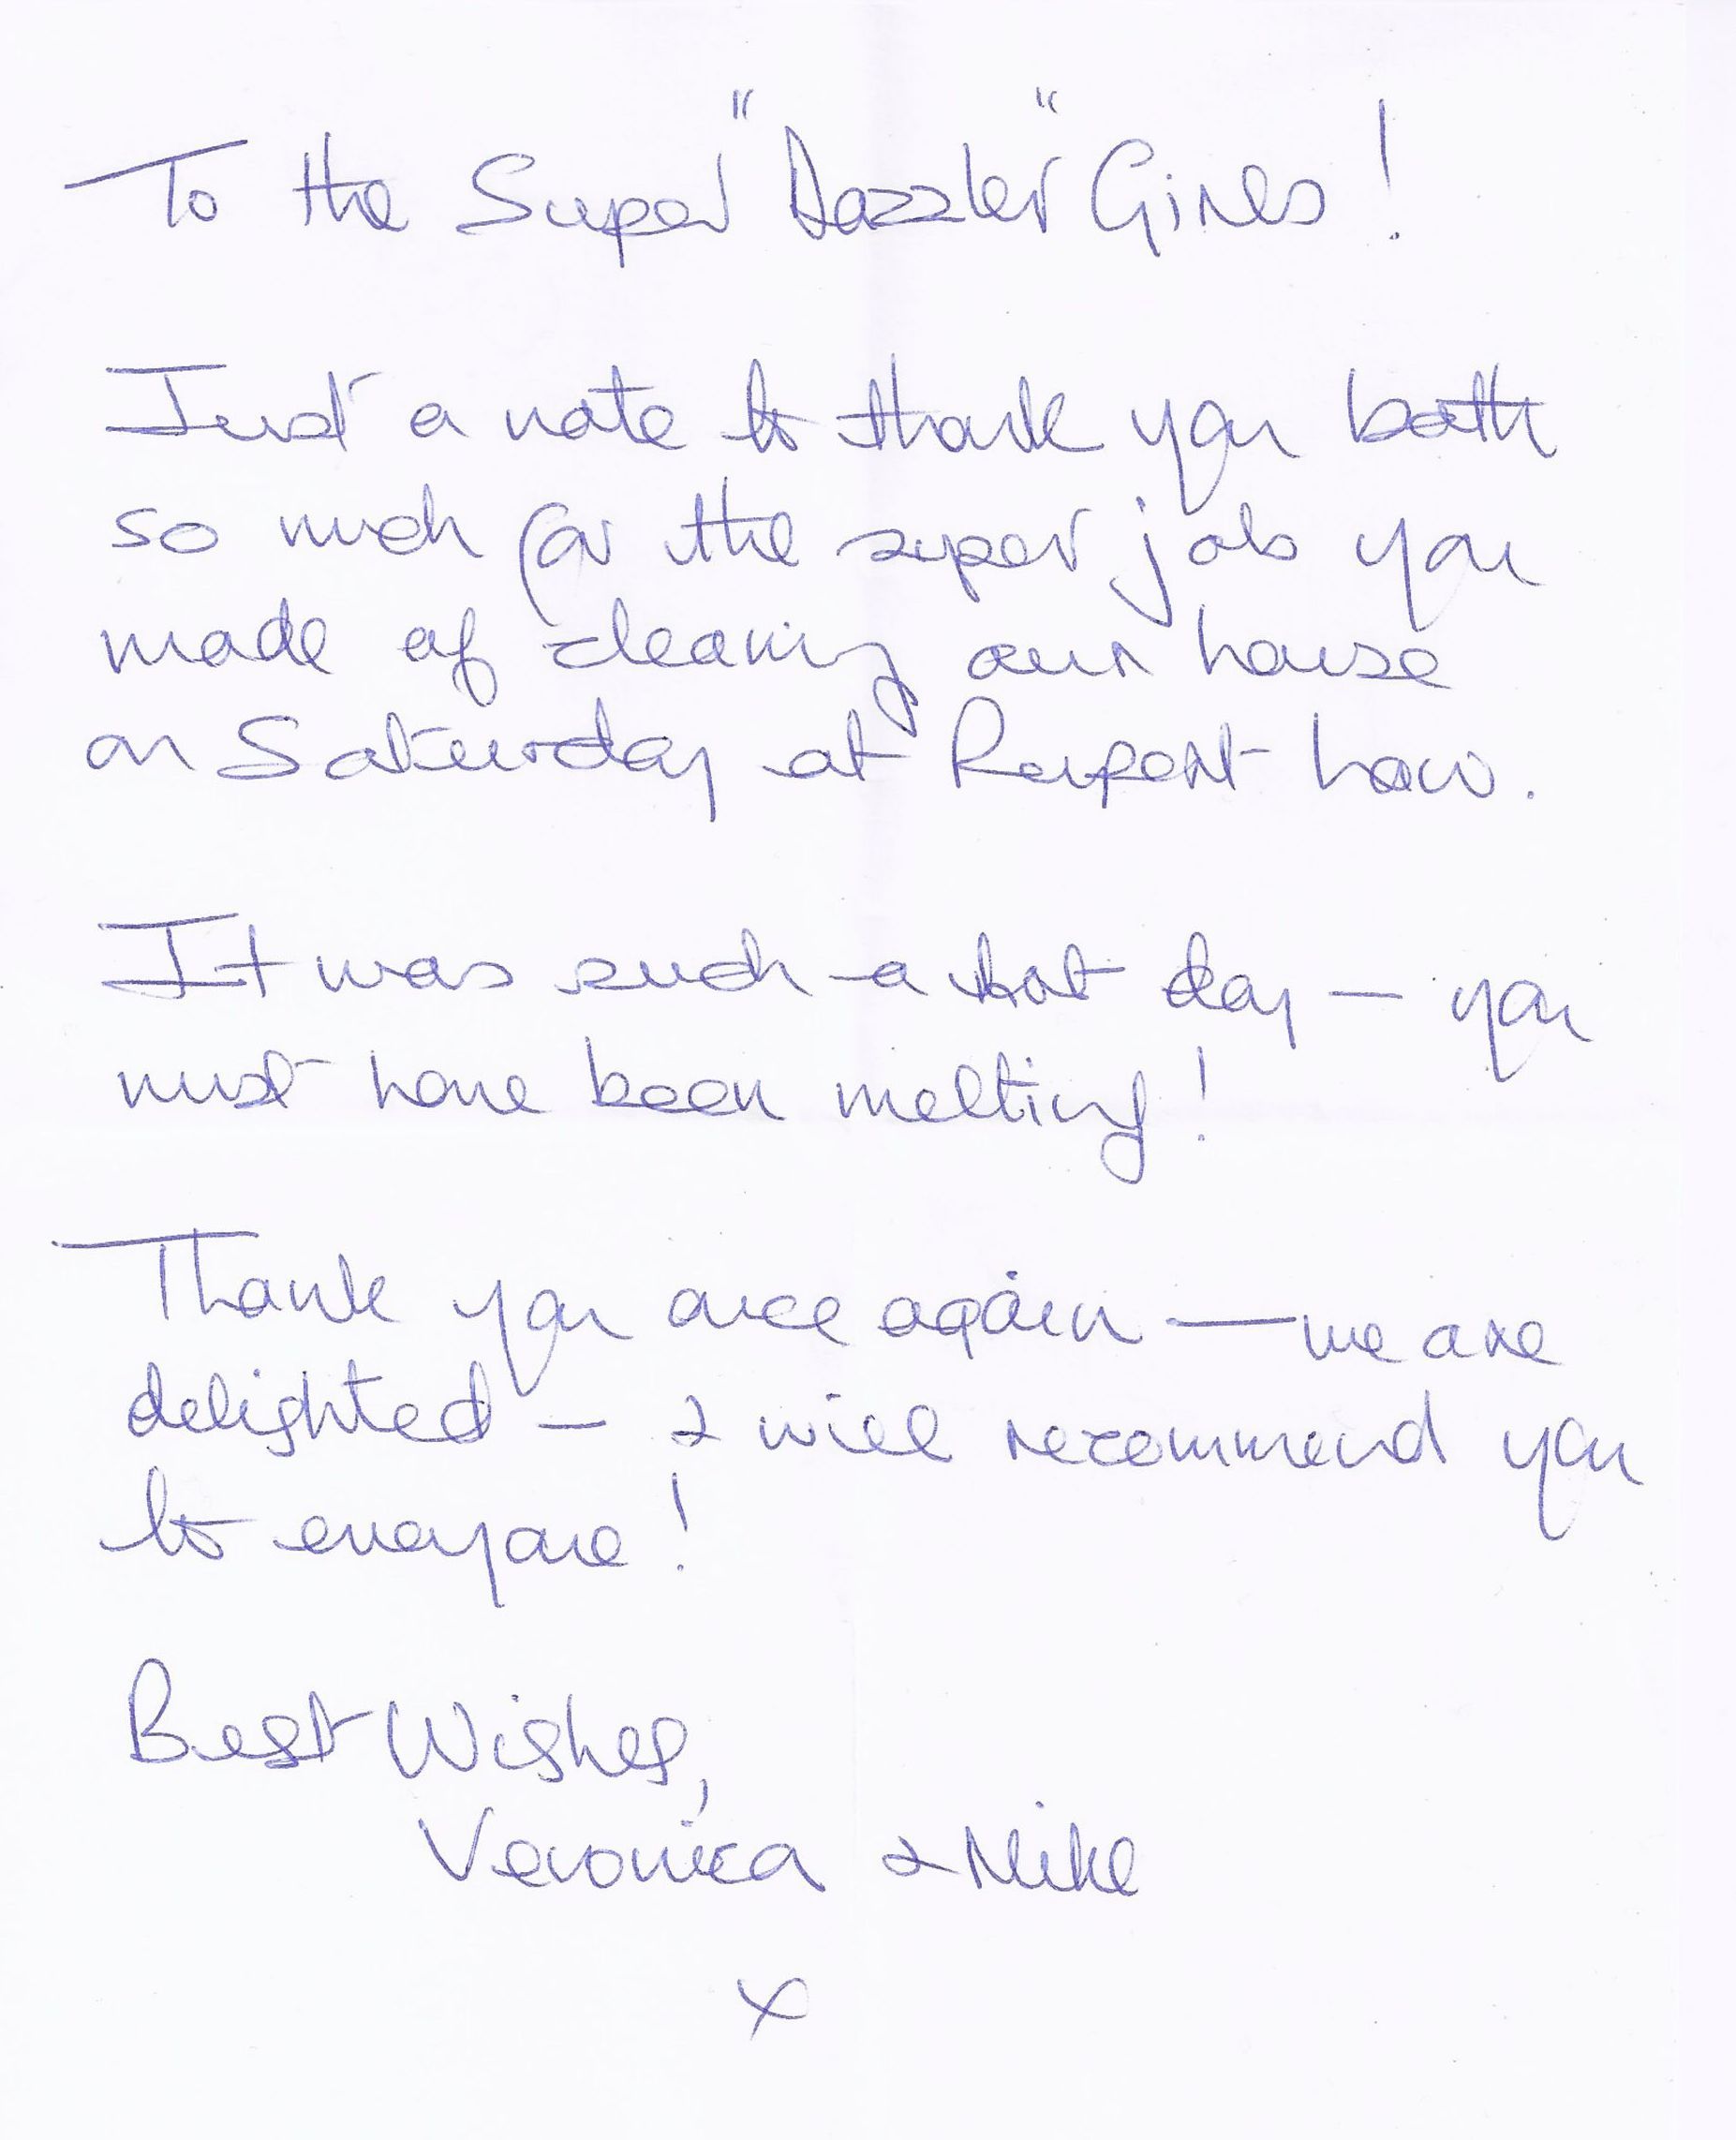 To the Super "Dazzler" Girls!
Just a note to thank you both
so much for the super job you
made of cleaning our house
on Saturday at Rupert
It was such a hot day – you
must have been melting!
Thank you once again – we are
delighted – & will recommend you
to everyone!
Best Wishes,
Veronica & Mike
x